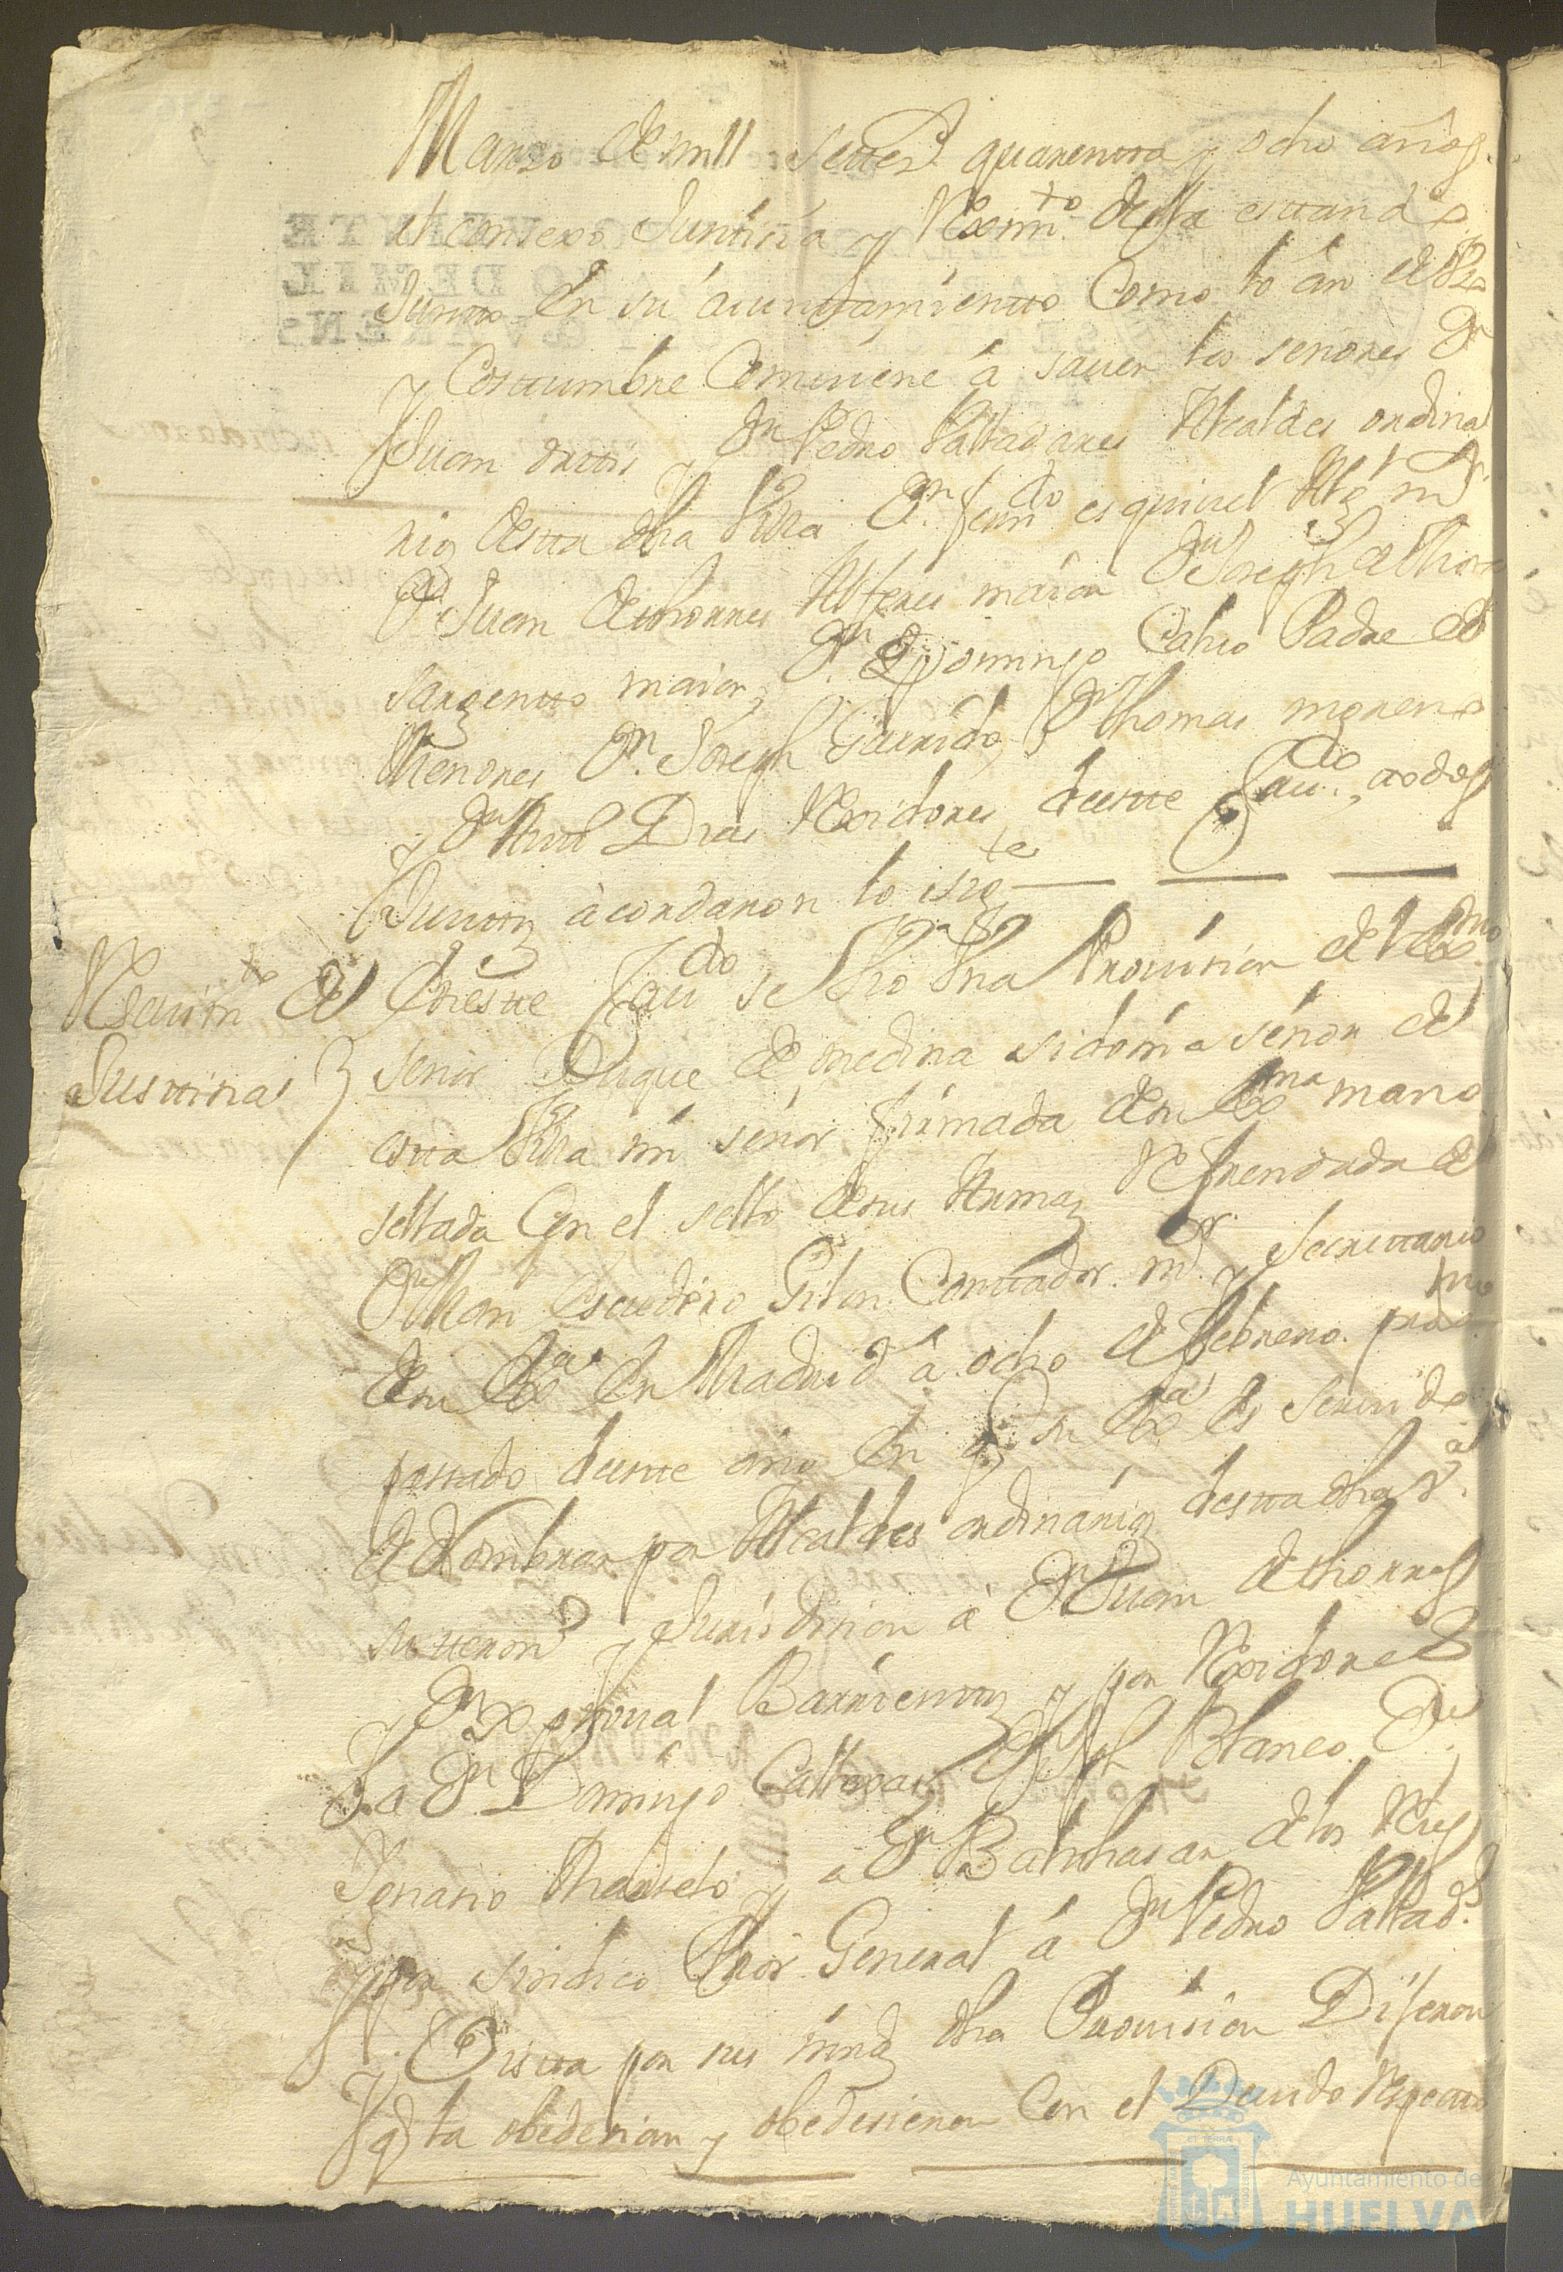 Marzo de mill settes.s quarentta y ocho años
el consexo Justisia y Rexim.to della estand.o
Juntto en su aiunttamientto Como lo an de Vzo
y Costtumbre Combiene á sauer los señores D.n
Juan Orttis y D.n Pedro Valladares Alcaldes ordina
rios destta dha Villa D.n fern.do esquivel Alg.l m.r
D.n Juan de thorres Alferes maior D.n Joseph de Thorres
sargentto maior, D.n Domingo Calvo Padre de
Menores D.n Joseph Garrido, D.n thomas moreno
y D.n Dias Rexidores destte Cau.do, todos
Juntos acordaron lo sig.te
Resevim.to de
Justtisias
En estte Cau.do se Vio Vna Provision del Ex.mo
señor Duque de medina sidonia señor de
estta Villa mi señor firmada de su Ex.ma mano
sellada Con el sello de sus Armas Refrendada de
D.n Escudero Gilon Conttador m.r y Secrettario
de su Ex.a en Madrid á ocho de febrero prox.mo
passado destte año en q.e su Ex.a es servido
de Nombrar por Alcaldes ordinarios destta dha V.a
su ttermn.o y Jurisdision á D.n Juan de thorres
y D.n Xpttoual Barrienttos y por Rexidores
a D.n Domingo D.n Jph Blanco D.n
Ignasio y a D.n Balthasar de los Reies
y por sindico Pror General á D.n Pedro Vallad.s
Y Vistta por sus mrds dha Provision Dijeron
q.e la obedesian y obedesieron Con el Deuido Respectto
Ayuntamiento de
HUELVA